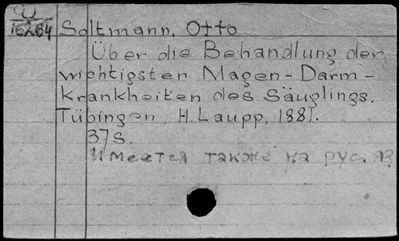 U
16264
Soltmann, Otto
Über die Behandlung der
wichtigsten Magen-Darm-
Krankheiten des Säuglings.
Tübingen, H. Laupp, 1881.
37S.
Имеется также на рус. яз.